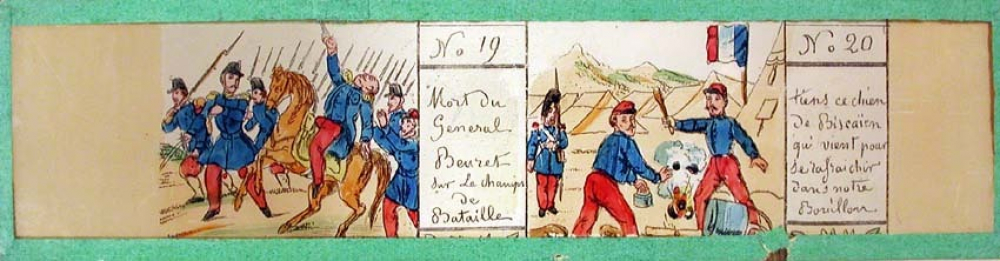 No 19
Mort du
General
Beuret
sur Le champs
de
Bataille
No 20
tiens ce chien
De Biscaïen
qui vient pour
se rafraichir
dans notre
Bouillon